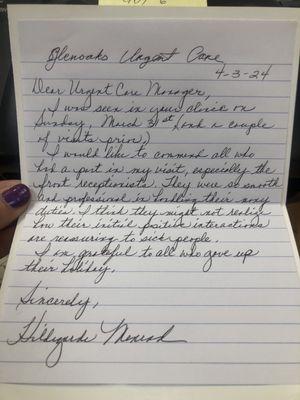 Glenoaks Urgent Care
4-3-24
Dear Urgent Care Manager,
I was seen in your clinic on
Sunday, March 31st (and a couple
of visits prior)
I would like to commend all who
had a part in my visit, especially the
front receptionists. They were so smooth
and professional in handling their many
duties. I think they might not realize
how their initial positive interactions
are reassuring to sick people.
I am grateful to all who gave up
their holiday.
Sincerely,
Hildegarde